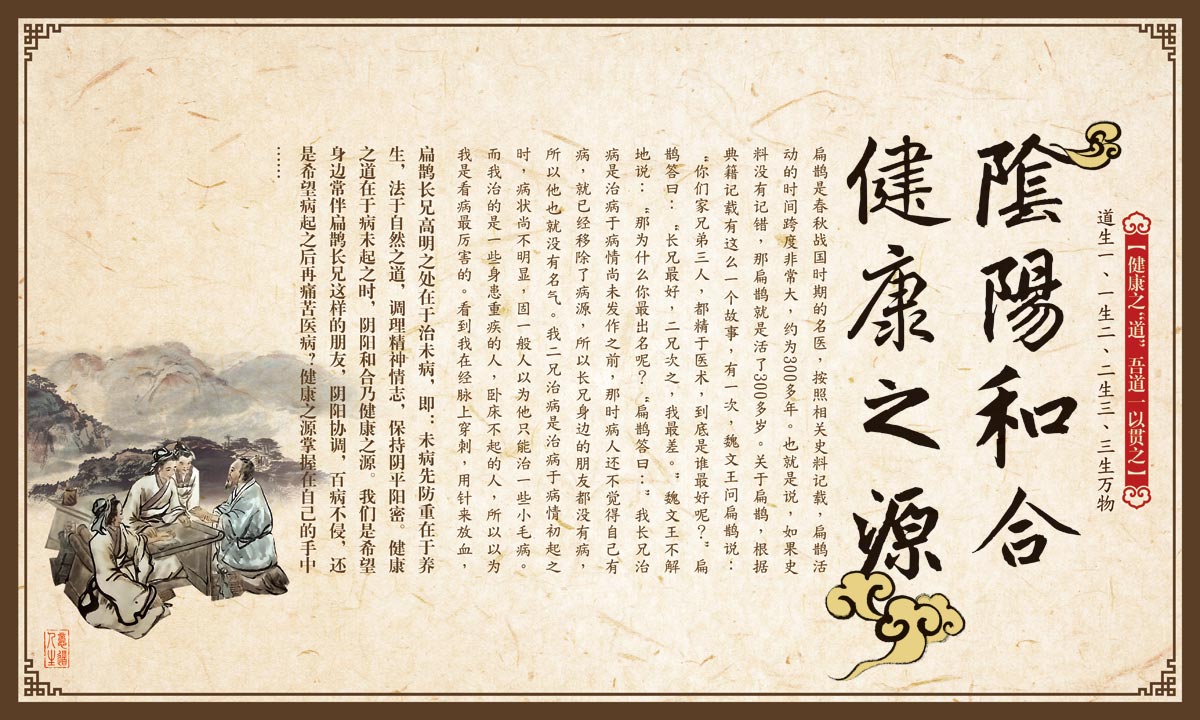 【健康之“道”吾道一以贯之】
道生一、一生二、二生三、三生万物
陰陽和合
健康之源
扁鹊是春秋战国时期的名医，按照相关史料记载，扁鹊活
动的时间跨度非常大，约为300多年。也就是说，如果史
料没有记错，那扁鹊就是活了300多岁。关于扁鹊，根据
典籍记载有这么一个故事，有一次，魏文王问扁鹊说：
“你们家兄弟三人，都精于医术，到底是谁最好呢？”扁
鹊答曰：“长兄最好，二兄次之，我最差。”魏文王不解
地说：“那为什么你最出名呢？”扁鹊答曰：“我长兄治
病是治病于病情尚未发作之前，那时病人还不觉得自己有
病，就已经移除了病源，所以长兄身边的朋友都没有病，
所以他也就没有名气。我二兄治病是治病于病情初起之
时，病状尚不明显，固一般人以为他只能治一些小毛病。
而我治的是一些身患重疾的人，卧床不起的人，所以以为
我是看病最厉害的。看到我在经脉上穿刺，用针来放血，
扁鹊长兄高明之处在于治未病，即：未病先防重在于养
生，法于自然之道，调理精神情志，保持阴平阳密。健康
之道在于病未起之时，阴阳和合乃健康之源。我们是希望
身边常伴扁鹊长兄这样的朋友，阴阳协调，百病不侵，还
是希望病起之后再痛苦医病？健康之源掌握在自己的手中
……